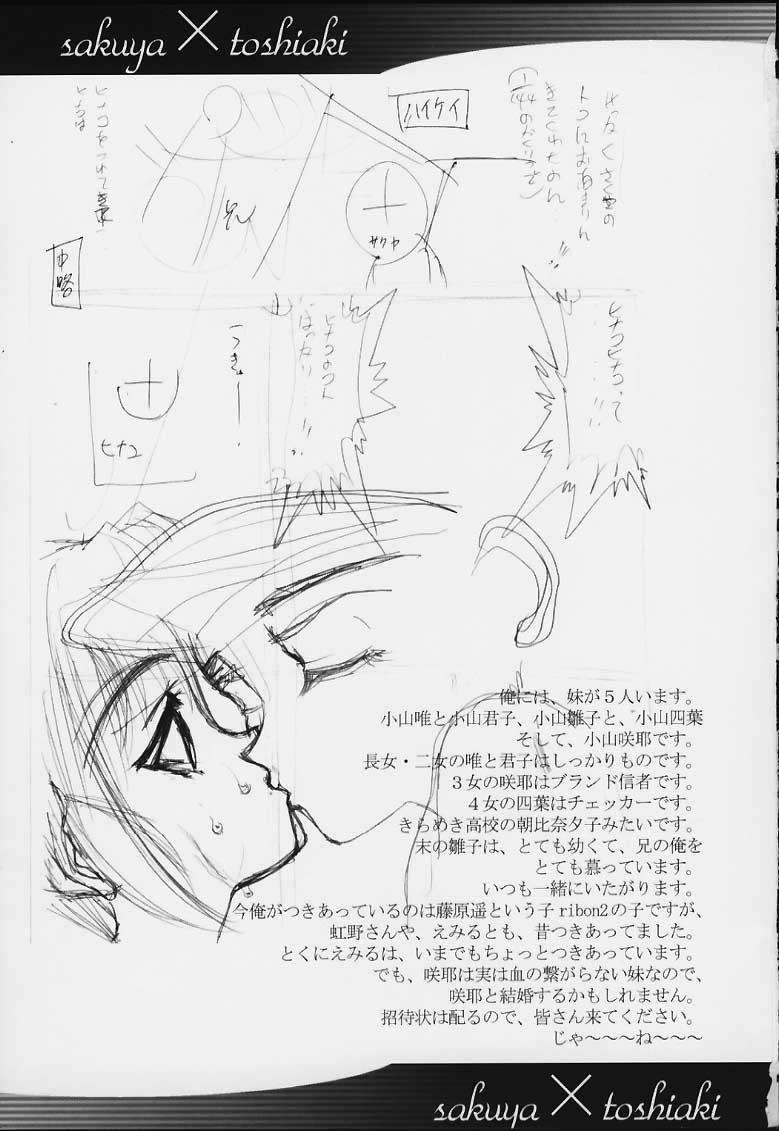 sakuya × toshiaki
ハイケイ
兄
サクヤ
中略
ヒナコ
俺には、妹が５人います。
小山唯と小山君子、小山雛子と、小山四葉
そして、小山咲耶です。
長女・二女の唯と君子はしっかりものです。
３女の咲耶はブランド信者です。
４女の四葉はチェッカーです。
きらめき高校の朝比奈夕子みたいです。
末の雛子は、とても幼くて、兄の俺を
とても慕っています。
いつも一緒にいたがります。
今俺がつきあっているのは藤原遥という子ribon2の子ですが、
虹野さんや、えみるとも、昔つきあってました。
とくにえみるは、いまでもちょっとつきあっています。
でも、咲耶は実は血の繋がらない妹なので、
咲耶と結婚するかもしれません。
招待状は配るので、皆さん来てください。
じゃ～～～ね～～～
sakuya × toshiaki